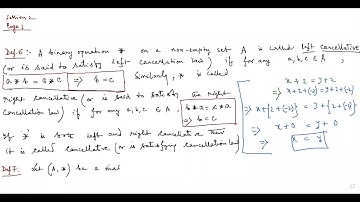 Lecture 2
Page 1
Def. 6 :- A binary operation * on a non-empty set A is called left cancellative
(or is said to satisfy left cancellation law) if for any a, b, c ∈ A,
a * b = a * c ⇒ b = c Similarly, * is called
right cancellative (or is said to satisfy the right
cancellation law) if for any a, b, c ∈ A, b * a = c * a ⇒ b = c
If * is both left and right cancellative then
it is called cancellative (or is satisfying cancellation law)
x + 2 = y + 2
⇒ x + 2 + (-2) = y + 2 + (-2)
⇒ x + {2 + (-2)} = y + {2 + (-2)}
⇒ x + 0 = y + 0
⇒ x = y
Def 7. Let (A, *) be a